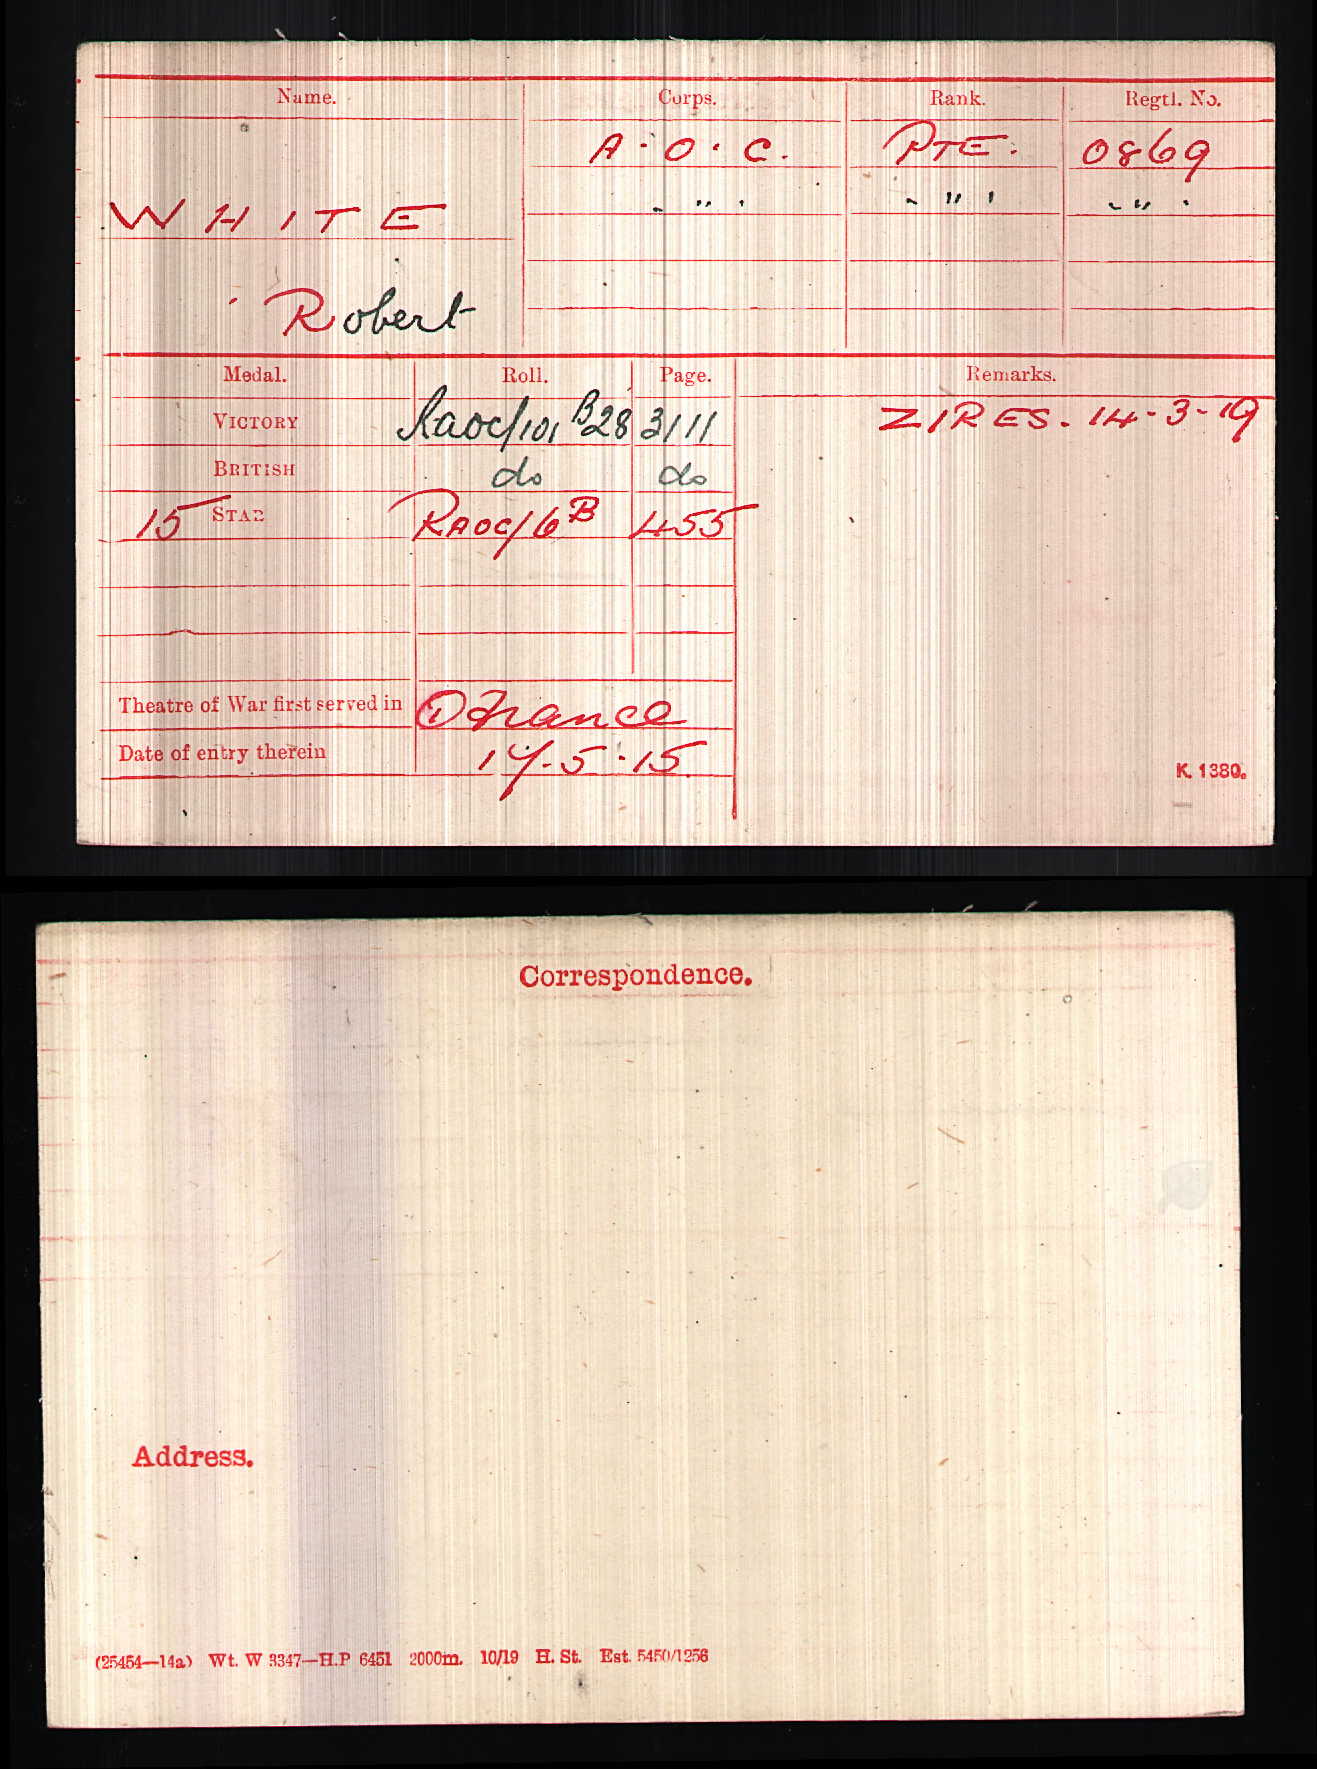 Name. Corps. Rank. Regtl. No.
A.O.C. PTE. 0869
" " "
WHITE
Robert
Medal. Roll. Page. Remarks.
VICTORY Raoc/101 B28 3111 Z/RES. 14-3-19
BRITISH do do
15 STAR RAOC/6B 455
Theatre of War first served in ① France
Date of entry therein 17-5-15
K. 1380.
Correspondence.
Address.
(25454—14a) Wt. W 3347—H.P 6451 2000m. 10/19 H. St. Est. 5450/1256